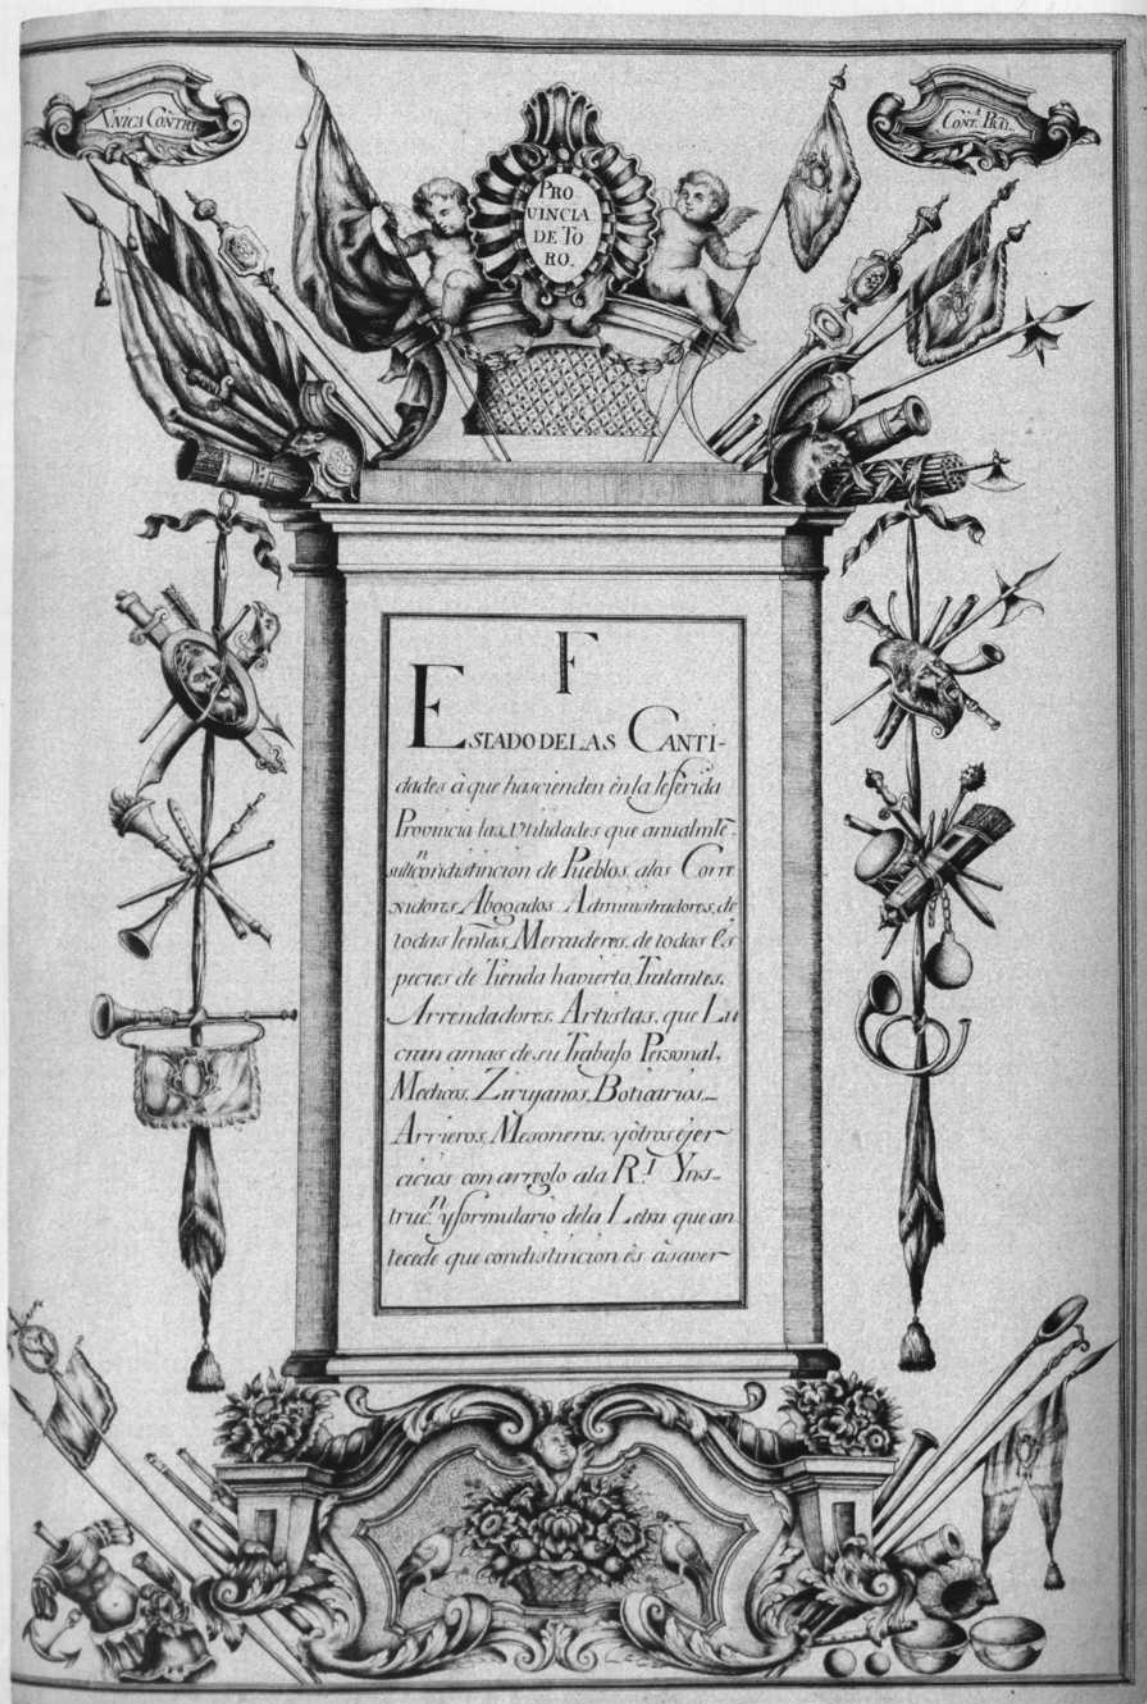 VNICA CONTRI.ⁿ
CONT.ª PRĀL.
PRO
VINCIA
DE TO
RO.
F
ESTADO DE LAS CANTI-
dades à que hascienden ên la referida
Provincia las Vtilidades que anualmte.
sultⁿ con distincion de Pueblos, alos Corre
xidores, Abogados Administradores, de
todas rentas, Mercaderes, de todas Es
pecies de Tienda havierta, Tratantes,
Arrendadores, Artistas, que Lu
cran amas de su Trabajo Personal,
Medicos, Zirujanos, Boticarios,-
Arrieros, Mesoneros, y ôtros ejer-
cicios con arreglo ala R.l Yns-
truc.n y formulario dela Letra que an
tecede que con distincion ês à saver